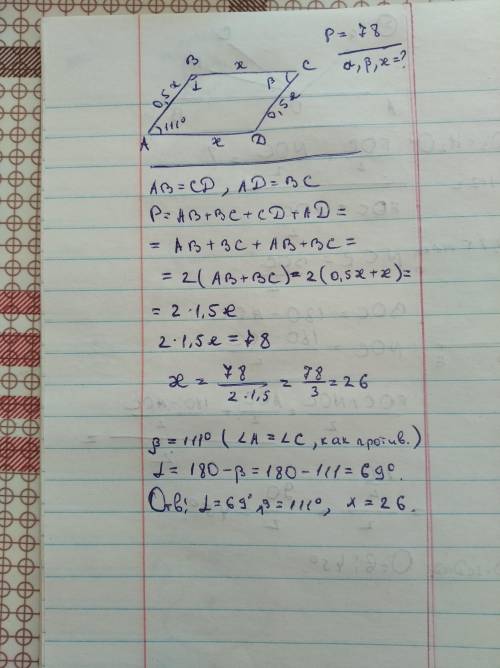 P = 78
α, β, x = ?
B x C
0,5x α β 0,5x
A 111° x D
AB = CD, AD = BC
P = AB + BC + CD + AD =
= AB + BC + AB + BC =
= 2(AB + BC) = 2(0,5x + x) =
= 2 · 1,5x
2 · 1,5x = 78
x = 78/(2 · 1,5) = 78/3 = 26
β = 111° (∠A = ∠C, как против.)
α = 180 - β = 180 - 111 = 69°.
Отв: α = 69°, β = 111°, x = 26.